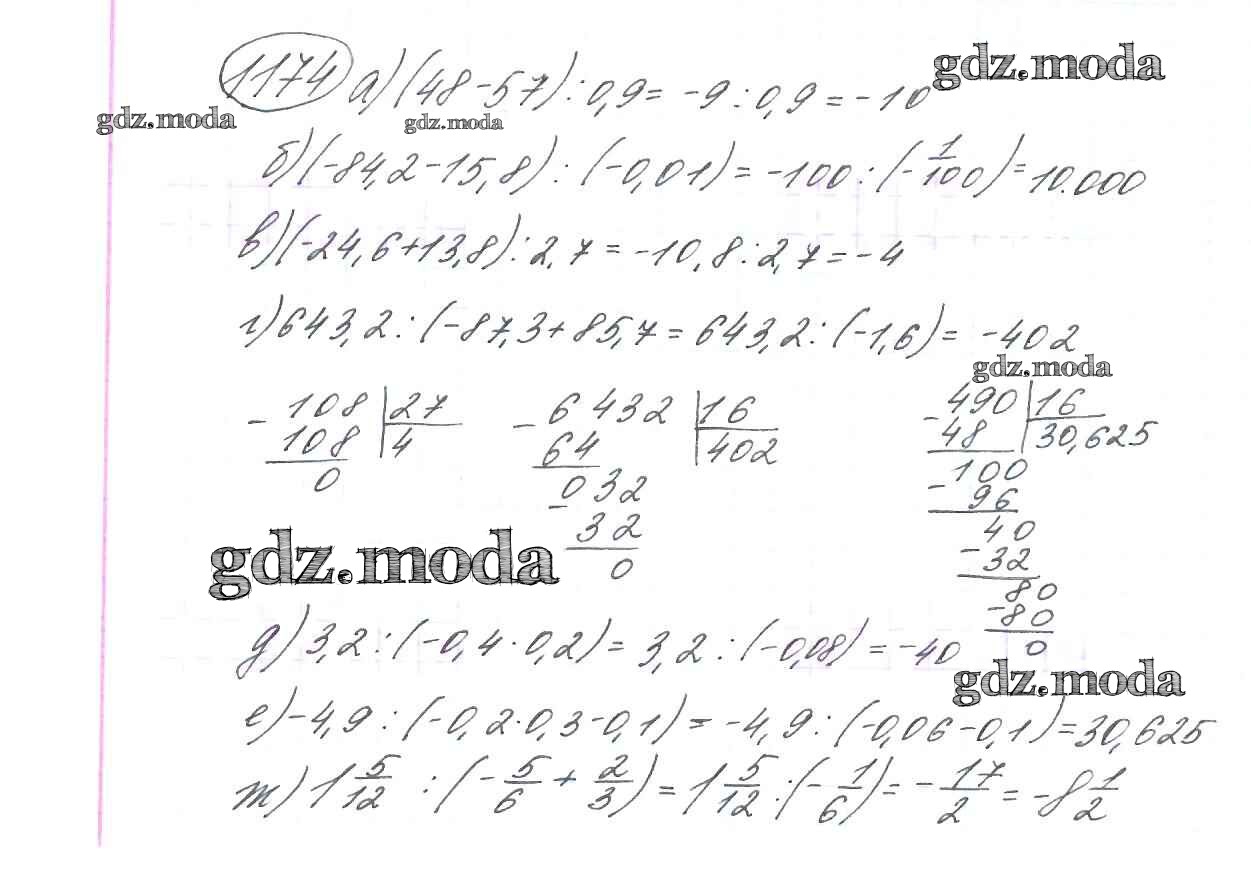 1174 а) (48-57) : 0,9 = -9 : 0,9 = -10
gdz.moda
gdz.moda
gdz.moda
б) (-84,2-15,8) : (-0,01) = -100 : (-1/100) = 10.000
в) (-24,6+13,8) : 2,7 = -10,8 : 2,7 = -4
г) 643,2 : (-87,3+85,7 = 643,2 : (-1,6) = -402
gdz.moda
- 108 | 27
108 | 4
0
- 6432 | 16
64 | 402
032
- 32
0
- 490 | 16
48 | 30,625
100
- 96
40
- 32
80
- 80
0
gdz.moda
д) 3,2 : (-0,4 · 0,2) = 3,2 : (-0,08) = -40
gdz.moda
е) -4,9 : (-0,2·0,3-0,1) = -4,9 : (-0,06-0,1) = 30,625
ж) 1 5/12 : (-5/6 + 2/3) = 1 5/12 : (-1/6) = -17/2 = -8 1/2